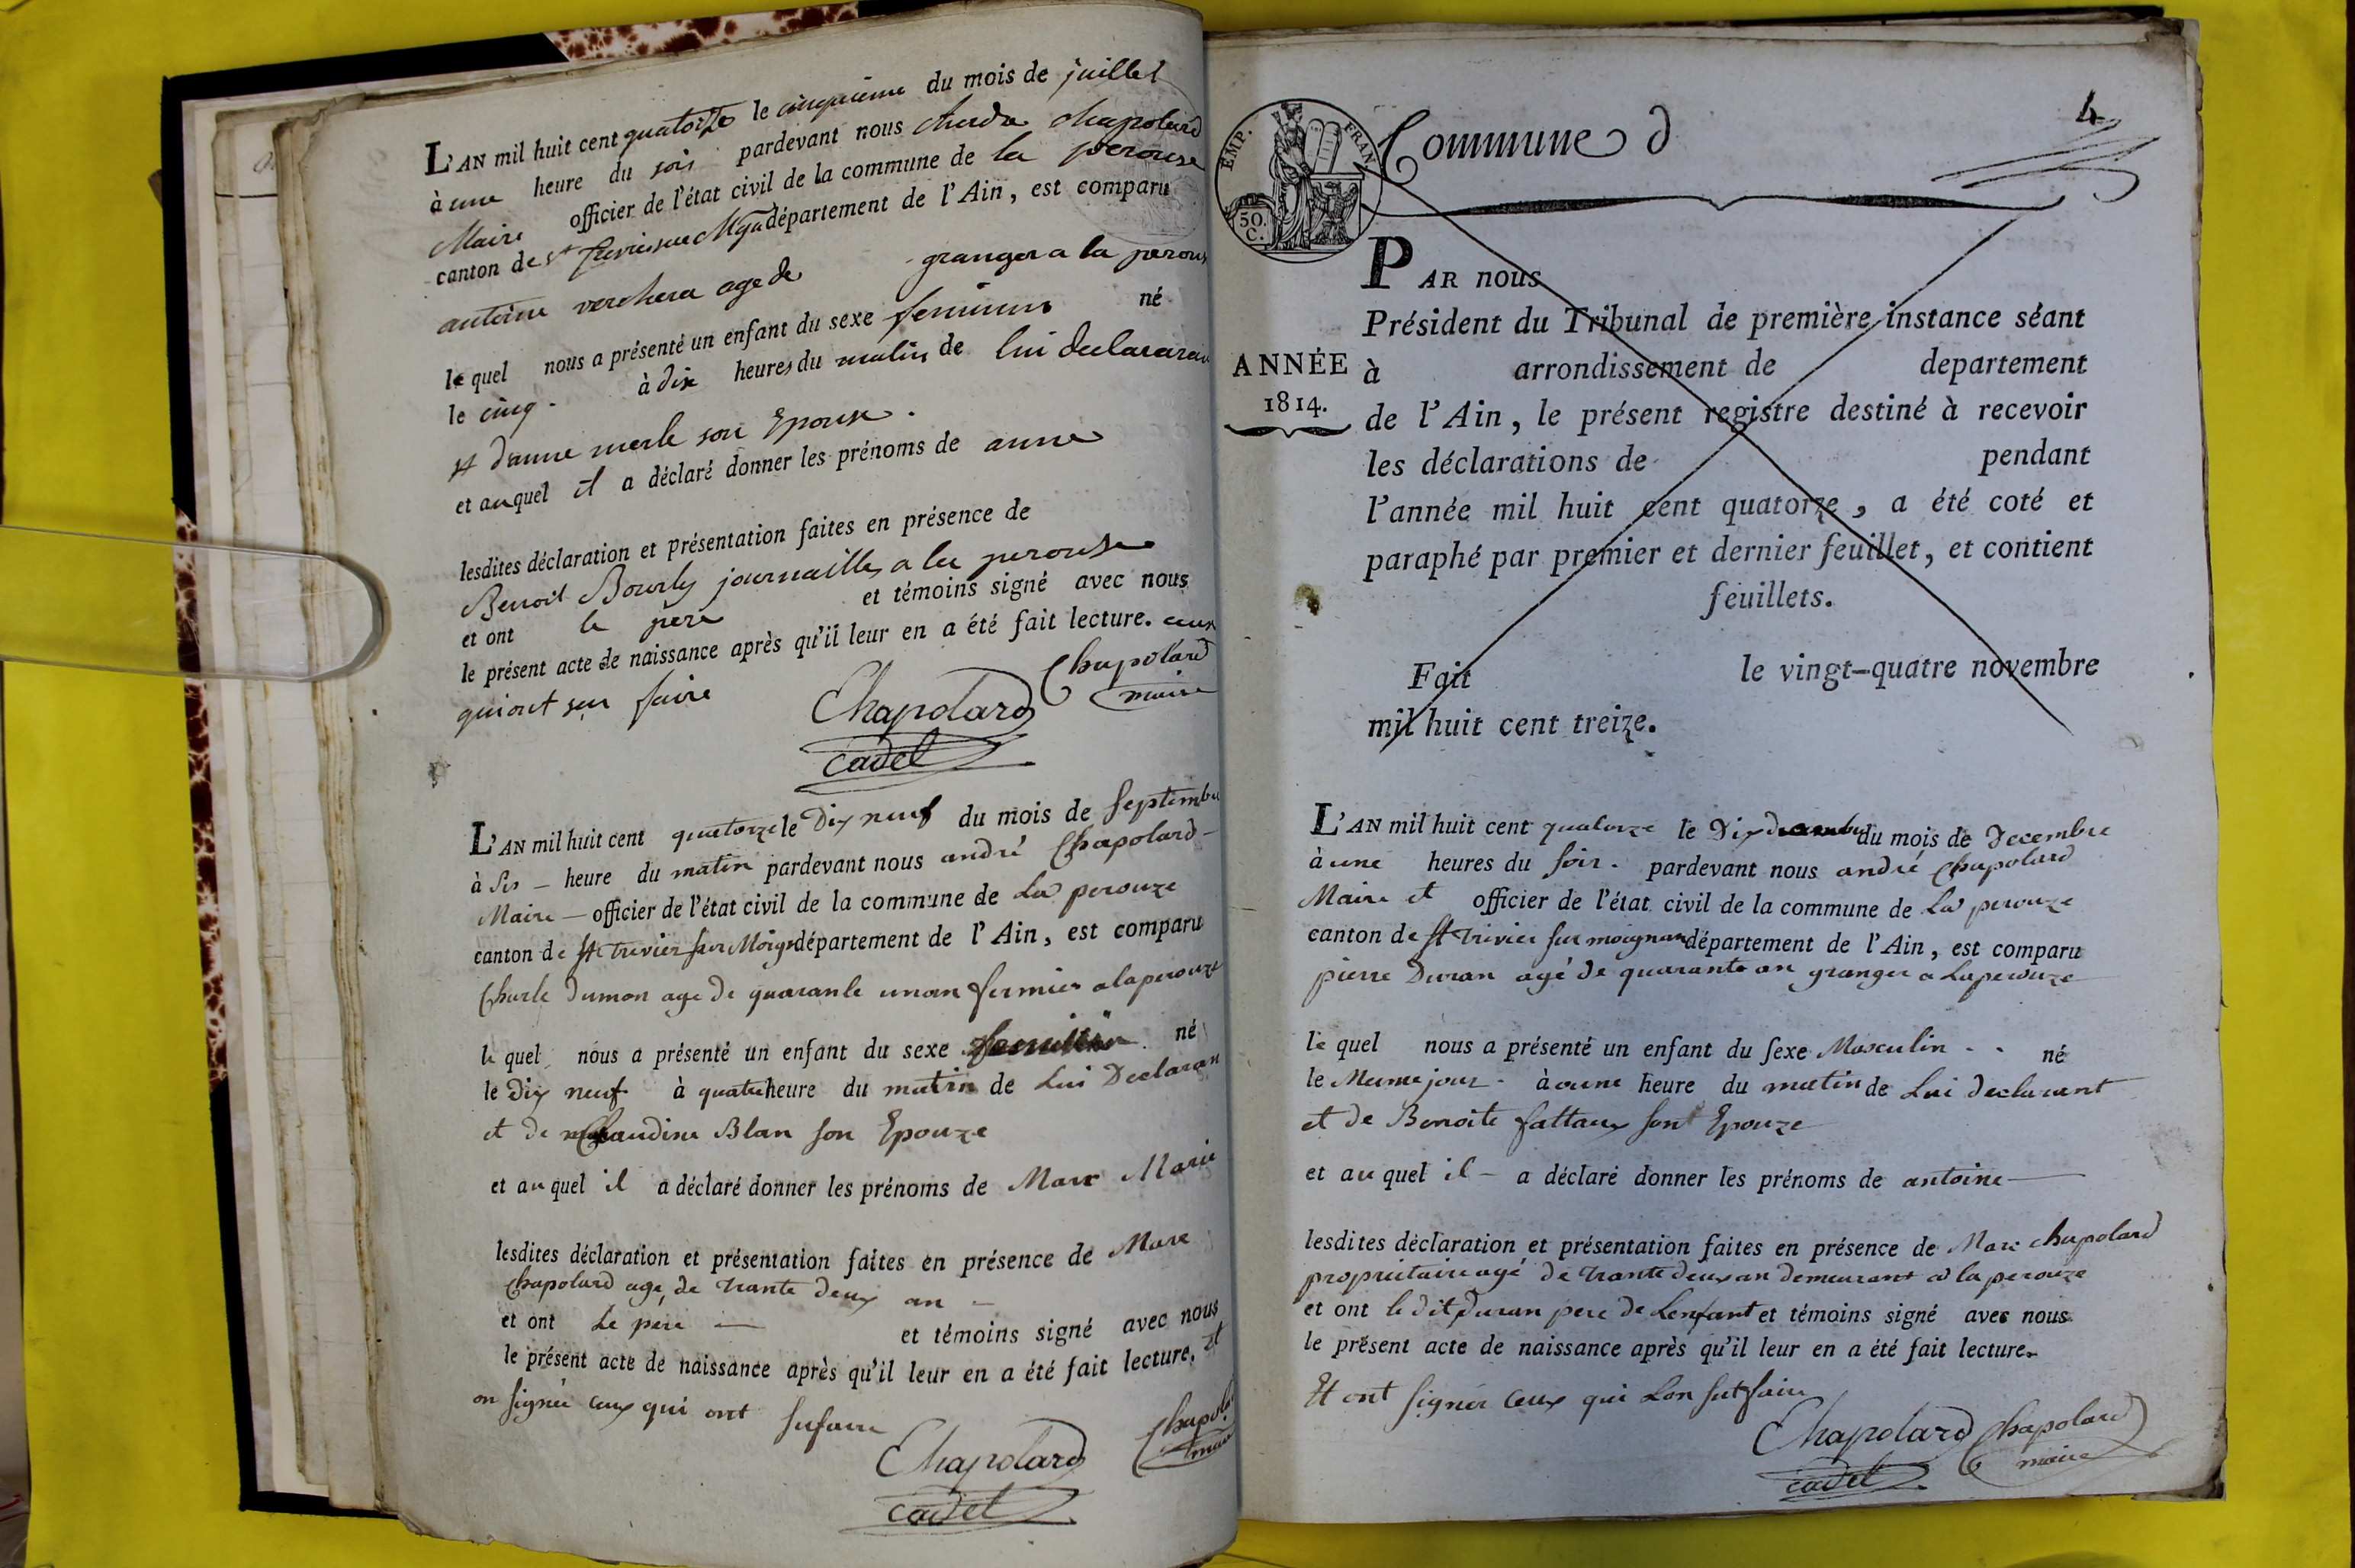 L'AN mil huit cent quatorze le cinquieme du mois de juillet
à une heure du soir pardevant nous chapolard
Maire officier de l'état civil de la commune de la perouse
canton de st département de l'Ain, est comparu
antoine verchera age de granger a la perous
le quel nous a présenté un enfant du sexe feminin né
le cinq à dix heures du matin de lui declararan
et d'anne merle son Epouse.
et auquel il a déclaré donner les prénoms de anne
lesdites déclaration et présentation faites en présence de
Benoit journaillé a la perouse
et ont le père et témoins signé avec nous
le présent acte de naissance après qu'il leur en a été fait lecture. ceux
qui ont seu faire
Chapolard
Chapolard
maire
cadet
L'AN mil huit cent quatorze le Dix neuf du mois de septembre
à six — heure du matin pardevant nous andré Chapolard —
Maire — officier de l'état civil de la commune de La perouze
canton de st trivier sur Moign département de l'Ain, est comparu
Charle Dumon age de quarante unan fermier alaperouze
le quel nous a présenté un enfant du sexe né
le Dix neuf à quatre heure du matin de Lui Declaran
et de Claudine Blan son Epouze
et auquel il a déclaré donner les prénoms de Marc Marie
lesdites déclaration et présentation faites en présence de Marc
Chapolard age de trante deux an —
et ont Le père — et témoins signé avec nous
le présent acte de naissance après qu'il leur en a été fait lecture, et
on signée ceux qui ont sufaire
Chapolard
Chapolard
maire
cadet
4
EMP. FRAN.
50. C.
Commune d
PAR nous
Président du Tribunal de première instance séant
ANNÉE
1814.
à arrondissement de departement
de l'Ain, le présent registre destiné à recevoir
les déclarations de pendant
l'année mil huit cent quatorze, a été coté et
paraphé par premier et dernier feuillet, et contient
feuillets.
Fait le vingt-quatre novembre
mil huit cent treize.
L'AN mil huit cent quatorze le Dix du mois de Decembre
à une heures du soir. pardevant nous andré Chapolard
Maire et officier de l'état civil de la commune de La perouze
canton de st trivier sur moignan département de l'Ain, est comparu
pierre Duran agé de quarante an granger a Laperouze
le quel nous a présenté un enfant du sexe Masculin né
le Meme jour à oune heure du matin de Lui declarant
et de Benoite fattaux sont Epouze
et auquel il — a déclaré donner les prénoms de antoine —
lesdites déclaration et présentation faites en présence de Marc chapolard
proprietaire agé de trante deux an demeurant a la perouze
et ont le dit Duran pere de Lenfant et témoins signé avec nous
le présent acte de naissance après qu'il leur en a été fait lecture.
Et ont signér ceux qui Lon sut faire
Chapolard
Chapolard
maire
cadet